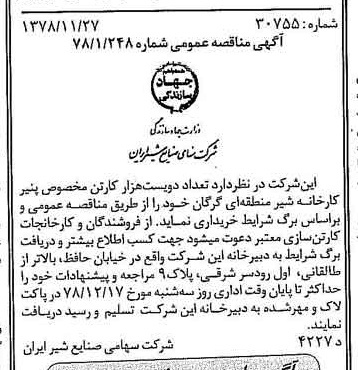 شماره: ۳۰۷۵۵ ۱۳۷۸/۱۱/۲۷
آگهی مناقصه عمومی شماره ۷۸/۱/۲۴۸
جهاد
سازندگی
وزارت جهاد سازندگی
شرکت سهامی صنایع شیر ایران
این شرکت در نظر دارد تعداد دویست‌هزار کارتن مخصوص پنیر
کارخانه شیر منطقه‌ای گرگان خود را از طریق مناقصه عمومی و
براساس برگ شرایط خریداری نماید. از فروشندگان و کارخانجات
کارتن‌سازی معتبر دعوت میشود جهت کسب اطلاع بیشتر و دریافت
برگ شرایط به دبیرخانه این شرکت واقع در خیابان حافظ، بالاتر از
طالقانی، اول رودسر شرقی، پلاک۹ مراجعه و پیشنهادات خود را
حداکثر تا پایان وقت اداری روز سه‌شنبه مورخ ۷۸/۱۲/۱۷ در پاکت
لاک و مهرشده به دبیرخانه این شرکت تسلیم و رسید دریافت
نمایند.
د ۴۲۲۷ شرکت سهامی صنایع شیر ایران